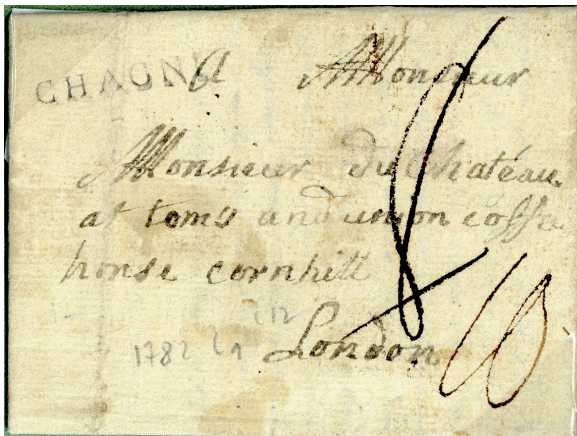 CHAGNY A Monsieur
Monsieur du Chatéau
at toms and union coffe
house cornhill
London
1782